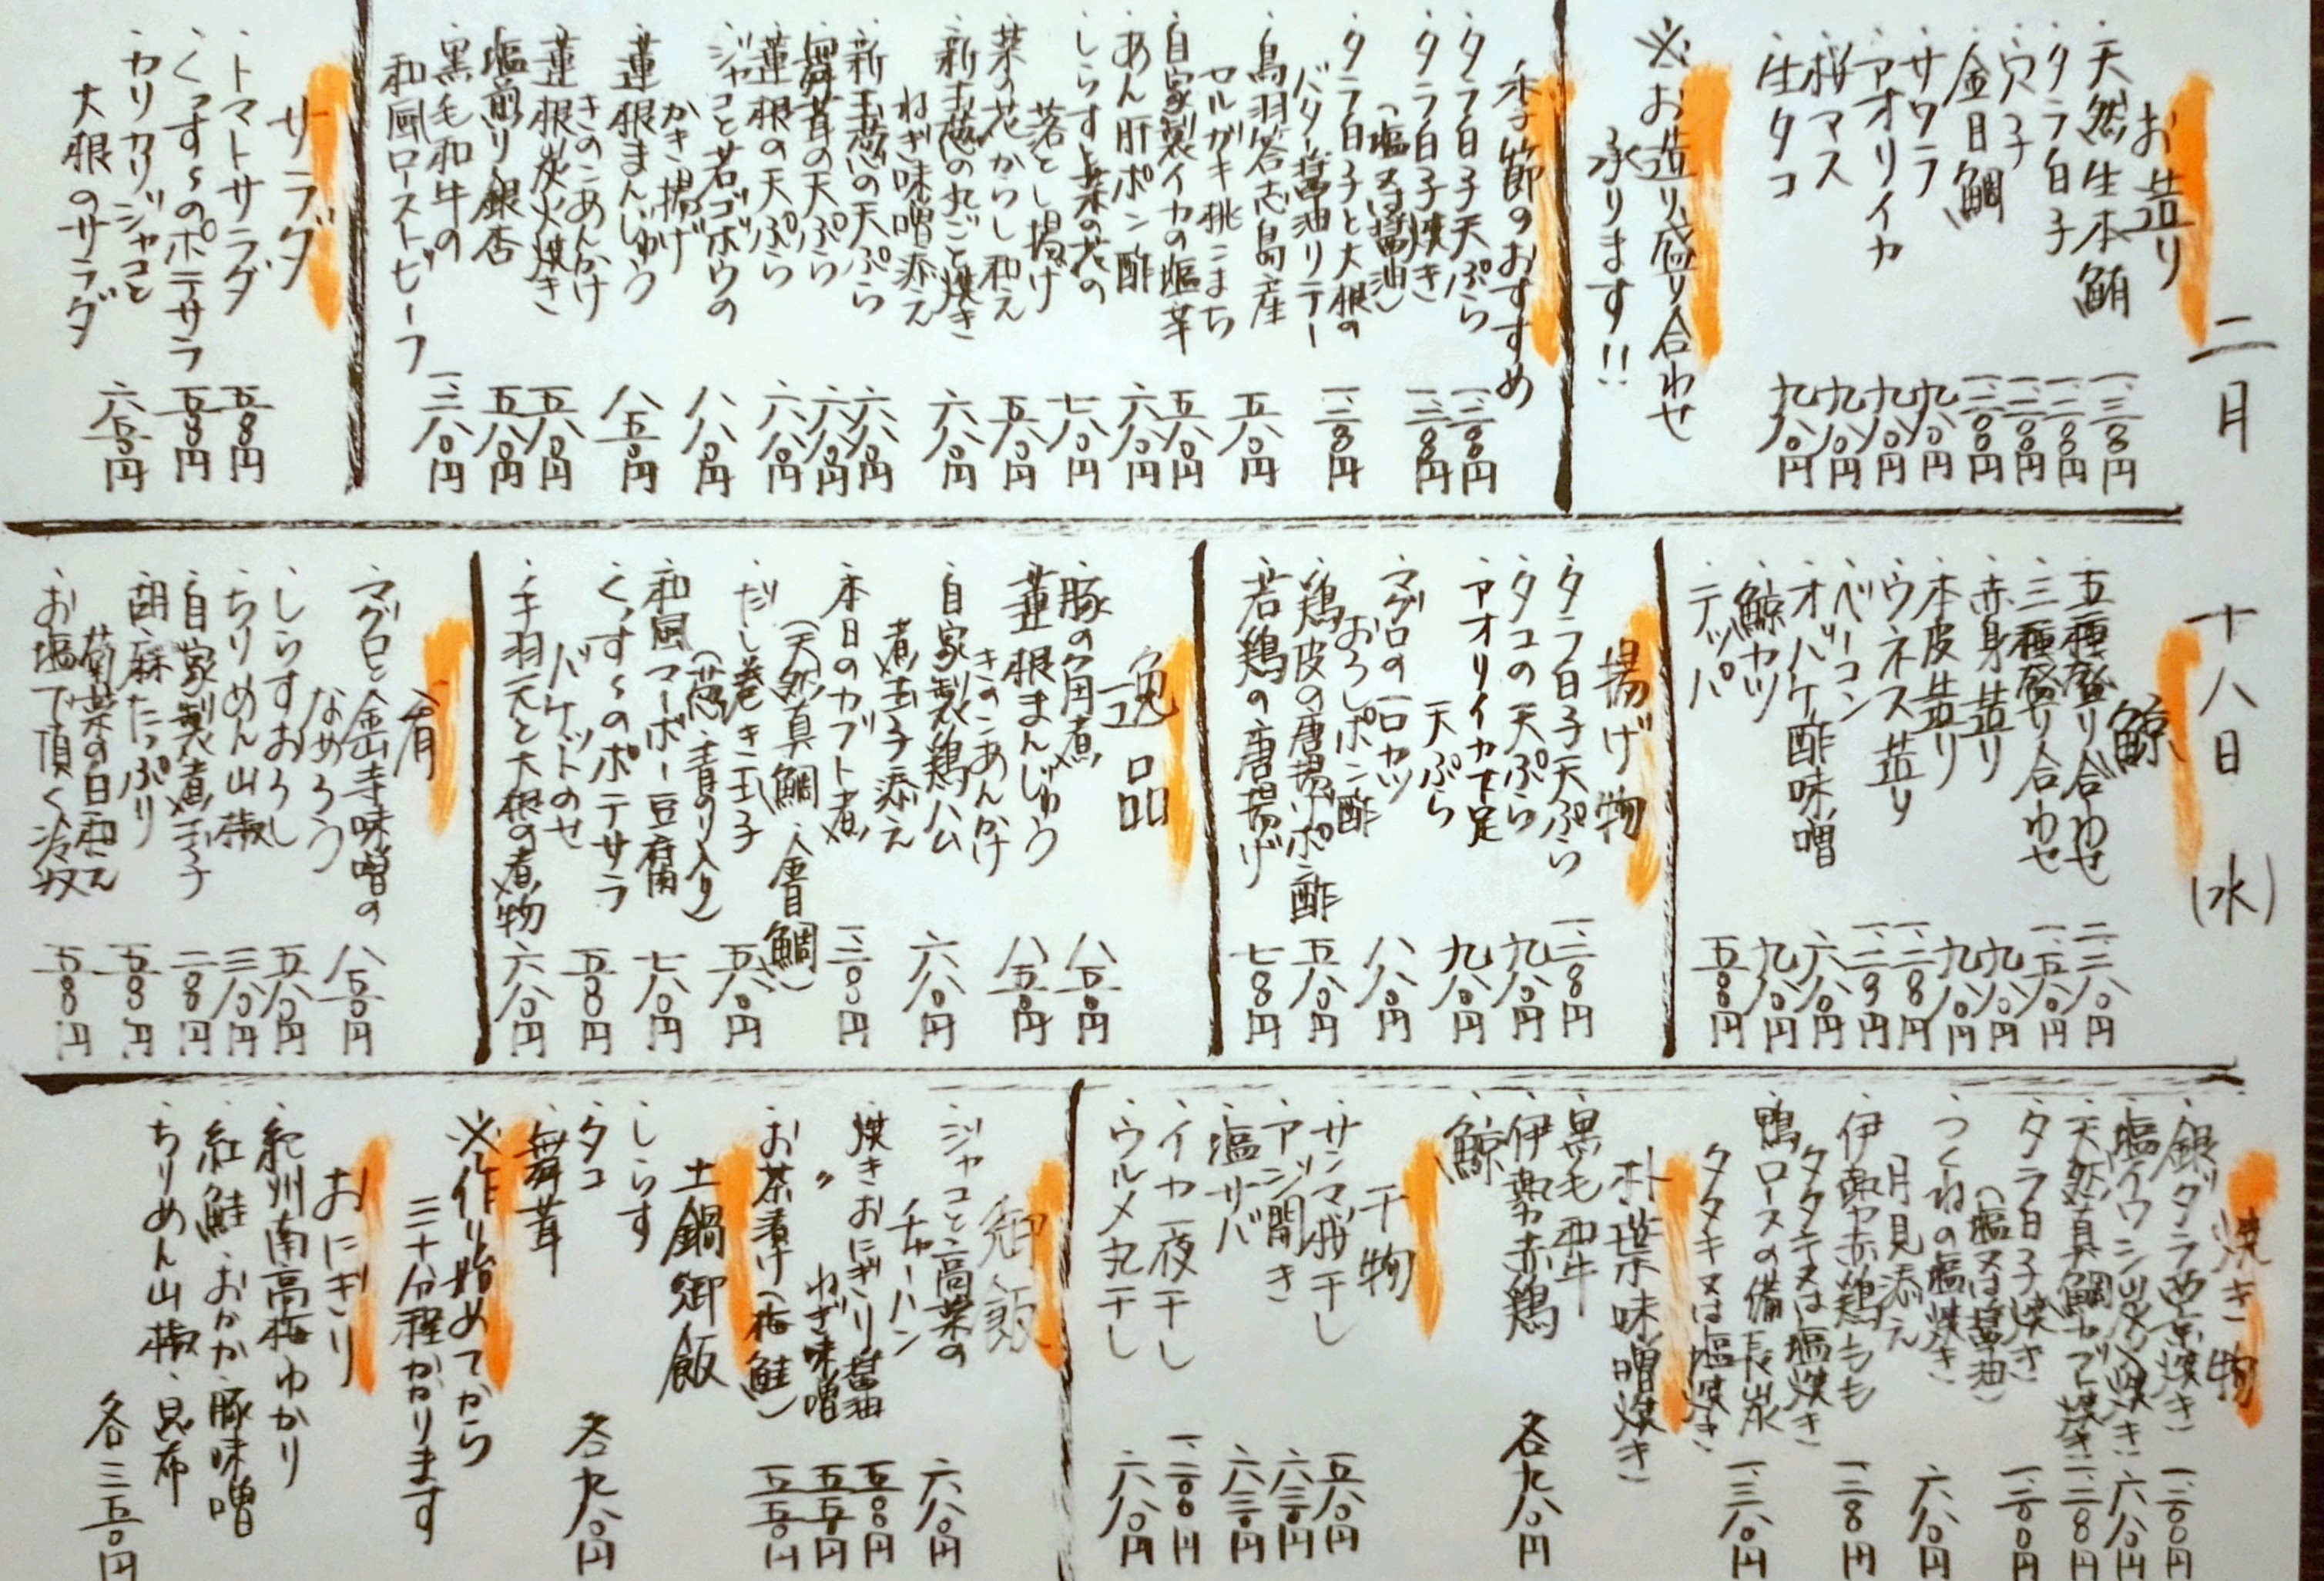 二月 十八日 (水)
お造り
・天然生本鮪 一、三〇〇円
・タラ白子 一、二〇〇円
・穴子 一、二〇〇円
・金目鯛 一、二〇〇円
・サワラ 九八〇円
・アオリイカ 九八〇円
・桜マス 九八〇円
・生タコ 九八〇円
※お造り盛り合わせ
承ります!!
季節のおすすめ
・タラ白子天ぷら 一、三〇〇円
・タラ白子焼き
(塩又は醤油) 一、三〇〇円
・タラ白子と大根の
バター醤油ソテー 一、三〇〇円
・鳥羽答志島産
ロルガキ桃こまち 五八〇円
・自家製イカの塩辛 五八〇円
・あん肝ポン酢 六八〇円
・しらすと菜の花の
落とし揚げ 七八〇円
・菜の花からし和え 五八〇円
・新玉葱の丸ごと焼き
ねぎ味噌添え 六八〇円
・新玉葱の天ぷら 六八〇円
・舞茸の天ぷら 六八〇円
・蓮根の天ぷら 六八〇円
・ジャコと若ゴボウの
かき揚げ 八八〇円
・蓮根まんじゅう
きのこあんかけ 八五〇円
・蓮根炭火焼き 五八〇円
・塩煎り銀杏 五八〇円
・黒毛和牛の
和風ローストビーフ 一、三八〇円
サラダ
・トマトサラダ 五〇〇円
・くっすんのポテサラ 五〇〇円
・カリカリジャコと
大根のサラダ 六五〇円
鯨
・五種盛り合わせ 二、二八〇円
・三種盛り合わせ 一、五八〇円
・赤身造り 九八〇円
・本皮造り 九八〇円
・ウネス造り 一、二〇〇円
・ベーコン 一、二〇〇円
・オバケ酢味噌 六八〇円
・鯨カツ 九八〇円
・テッパ 五〇〇円
揚げ物
・タラ白子天ぷら 一、三〇〇円
・タコの天ぷら 九八〇円
・アオリイカ下足
天ぷら 九八〇円
・マグロの一口カツ
おろしポン酢 八八〇円
・鶏皮の唐揚げポン酢 五八〇円
・若鶏の唐揚げ 七〇〇円
逸品
・豚の角煮 八五〇円
・蓮根まんじゅう
きのこあんかけ 八五〇円
・自家製鶏ハム
煮玉子添え 六八〇円
・本日のカブト煮
(天然真鯛・金目鯛) 一、二〇〇円
・だし巻き玉子
(葱・青のり入り) 五八〇円
・和風マーボー豆腐 七八〇円
・くっすんのポテサラ
バケットのせ 五〇〇円
・手羽元と大根の煮物 六八〇円
肴
・マグロと金山寺味噌の
なめろう 八五〇円
・しらすおろし 五八〇円
・ちりめん山椒 三八〇円
・自家製煮玉子 二〇〇円
・胡麻たっぷり
菊菜の白和え 五〇〇円
・お塩で頂く冷奴 五〇〇円
焼き物
・銀ダラ西京焼き 一、二〇〇円
・塩イワシ炭火焼き 六八〇円
・天然真鯛カブト焼き 一、二〇〇円
・タラ白子焼き
(塩又は醤油) 一、三〇〇円
・つくねの塩焼き
月見添え 六八〇円
・伊勢赤鶏もも
タタキ又は塩焼き 一、二〇〇円
・鴨ロースの備長炭
タタキ又は塩焼き 一、三八〇円
朴葉味噌焼き
・黒毛和牛
・伊勢赤鶏
・鯨 各九八〇円
干物
・サンマ桜干し 五八〇円
・アジ開き 六三〇円
・塩サバ 六三〇円
・イカ一夜干し 一、二〇〇円
・ウルメ丸干し 六八〇円
御飯
・ジャコと高菜の
チャーハン 六八〇円
・焼きおにぎり醤油 五〇〇円
〃 ねぎ味噌 五五〇円
・お茶漬け(梅・鮭) 五五〇円
土鍋御飯
・しらす
・タコ
・舞茸 各九八〇円
※作り始めてから
三十分程かかります
おにぎり
・紀州南高梅・ゆかり
・紅鮭・おかか・豚味噌
・ちりめん山椒・昆布
各三五〇円